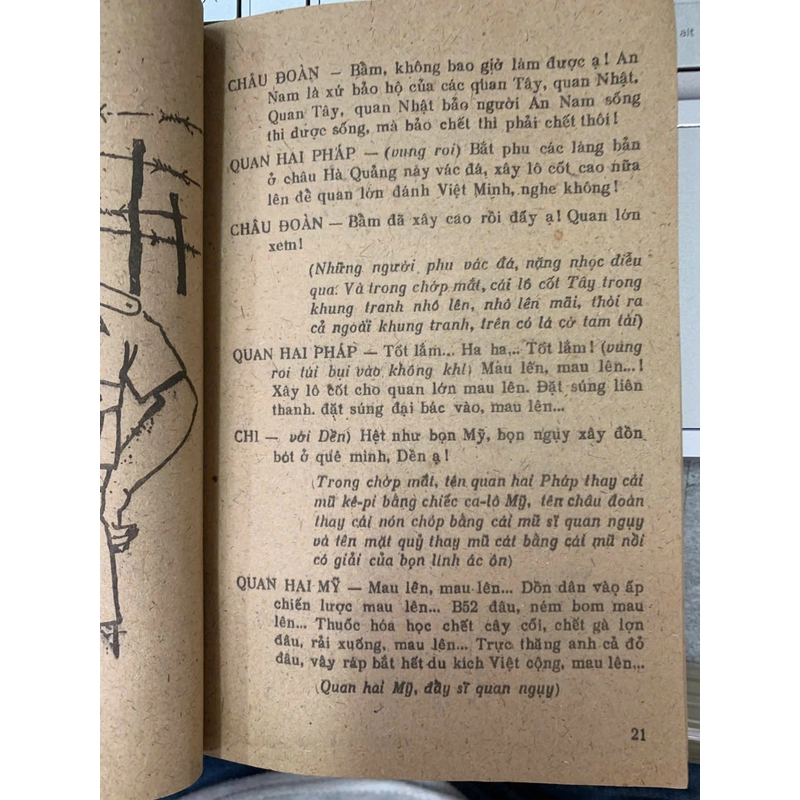 alt
CHÂU ĐOÀN — Bầm, không bao giờ làm được ạ! An
Nam là xứ bảo hộ của các quan Tây, quan Nhật.
Quan Tây, quan Nhật bảo người An Nam sống
thì được sống, mà bảo chết thì phải chết thôi!
QUAN HAI PHÁP — (vung roi) Bắt phu các làng bản
ở châu Hà Quảng này vác đá, xây lô cốt cao nữa
lên để quan lớn đánh Việt Minh, nghe không!
CHÂU ĐOÀN — Bầm đã xây cao rồi đấy ạ! Quan lớn
xem!
(Những người phu vác đá, nặng nhọc diễu
qua. Và trong chớp mắt, cái lô cốt Tây trong
khung tranh nhô lên, nhô lên mãi, thòi ra
cả ngoài khung tranh, trên có lá cờ tam tài)
QUAN HAI PHÁP — Tốt lắm... Ha ha... Tốt lắm! (vung
roi túi bụi vào không khí) Mau lên, mau lên...!
Xây lô cốt cho quan lớn mau lên. Đặt súng liên
thanh. đặt súng đại bác vào, mau lên...
CHI — với Dền) Hệt như bọn Mỹ, bọn ngụy xây đồn
bót ở quê mình, Dền ạ!
(Trong chớp mắt, tên quan hai Pháp thay cái
mũ kê-pi bằng chiếc ca-lô Mỹ, tên châu đoàn
thay cái nón chóp bằng cái mũ sĩ quan ngụy
và tên mặt quỷ thay mũ cát bằng cái mũ nồi
có giải của bọn lính ác ôn)
QUAN HAI MỸ — Mau lên, mau lên... Dồn dân vào ấp
chiến lược mau lên... B52 đâu, ném bom mau
lên... Thuốc hóa học chết cây cối, chết gà lợn
đâu, rải xuống, mau lên... Trực thăng anh cả đỏ
đâu, vây ráp bắt hết du kích Việt cộng, mau lên...
(Quan hai Mỹ, đầy sĩ quan ngụy)
21